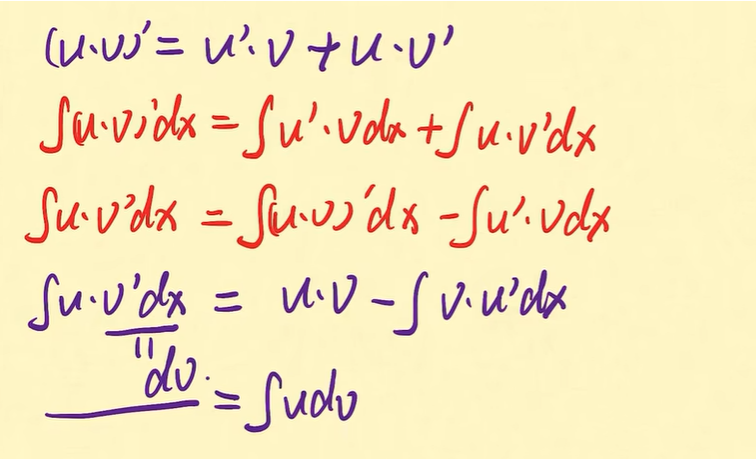 (u·v)' = u'·v + u·v'
∫(u·v)'dx = ∫u'·vdx + ∫u·v'dx
∫u·v'dx = ∫(u·v)'dx - ∫u'·vdx
∫u·v'dx = u·v - ∫v·u'dx
||
dv.
= ∫udv